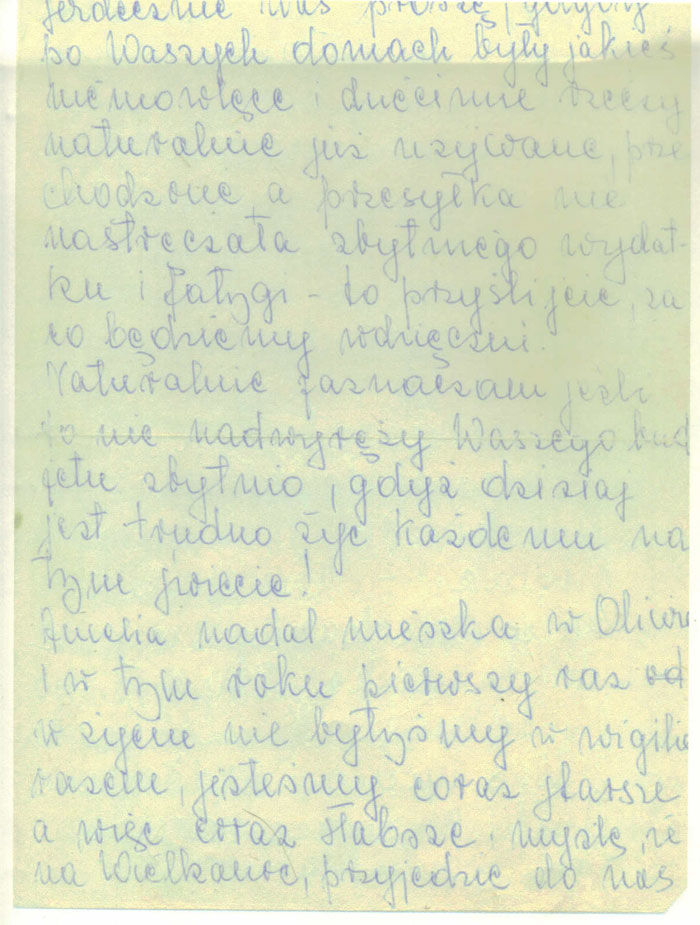 serdecznie Was proszę, gdyby
po Waszych domach były jakieś
niemowlęce i dziecinne rzeczy
naturalnie już używane, prze
chodzone, a przesyłka nie
nastręczała zbytniego wydat-
ku i fatygi - to przyślijcie, za
co będziemy wdzięczni.
Naturalnie zaznaczam jeśli
to nie nadwyręży Waszego bud
żetu zbytnio, gdyż dzisiaj
jest trudno żyć każdemu na
tym świecie!
Amelia nadal mieszka w Oliwie
i w tym roku pierwszy raz od
w życiu nie byłyśmy w wigilie
razem, jesteśmy coraz starsze
a więc coraz słabsze, myślę, że
na Wielkanoc, przyjedzie do nas